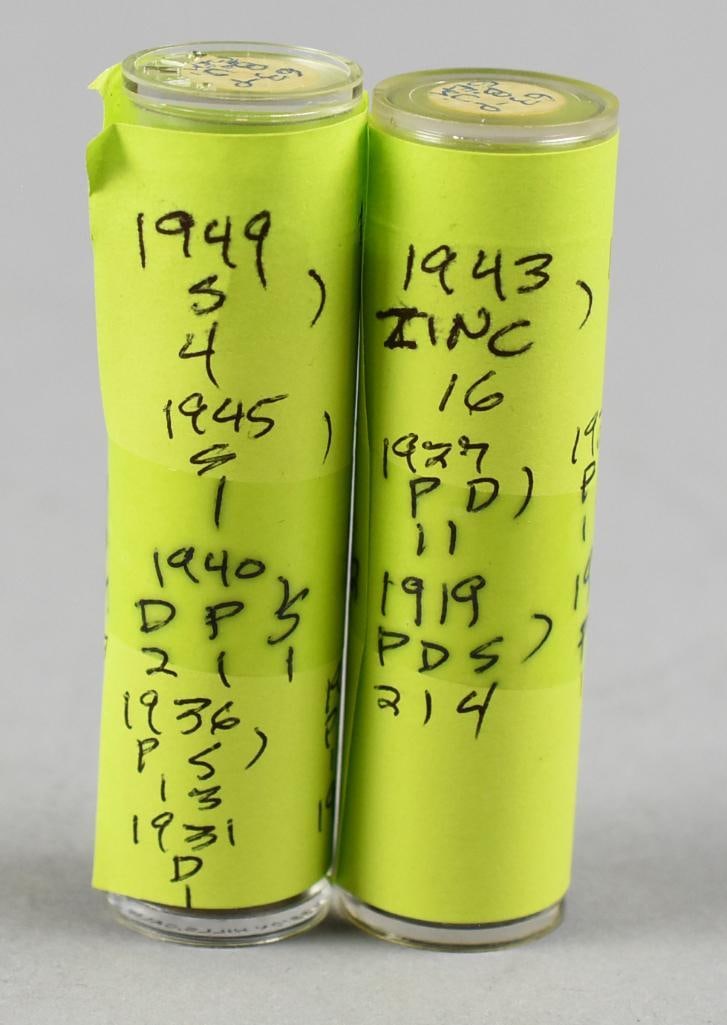 1949
S )
4
1945
S )
1
1940,
D P S
2 1 1
1936,
P S )
1 3
1931
D
1
1943,
ZINC )
16
1927
P D )
11
1919
PDS )
214